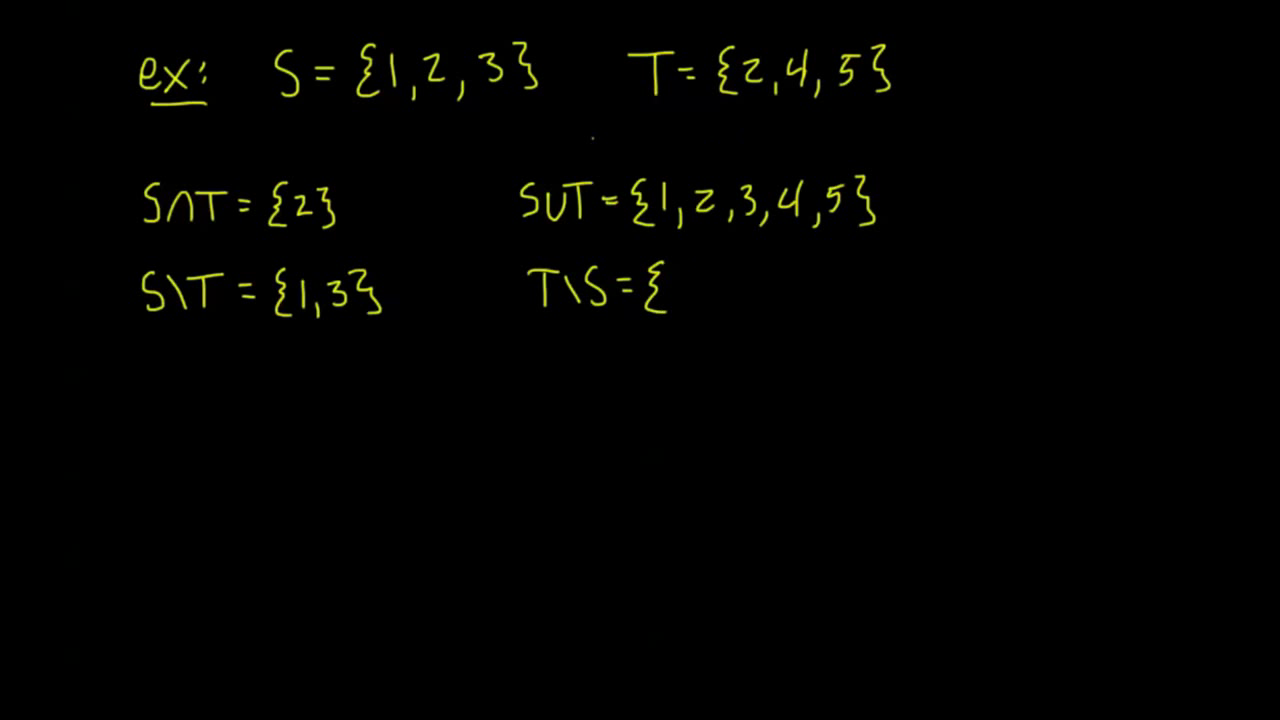 ex: S = {1, 2, 3} T = {2, 4, 5}
S∩T = {2} S∪T = {1, 2, 3, 4, 5}
S\T = {1, 3} T\S = {